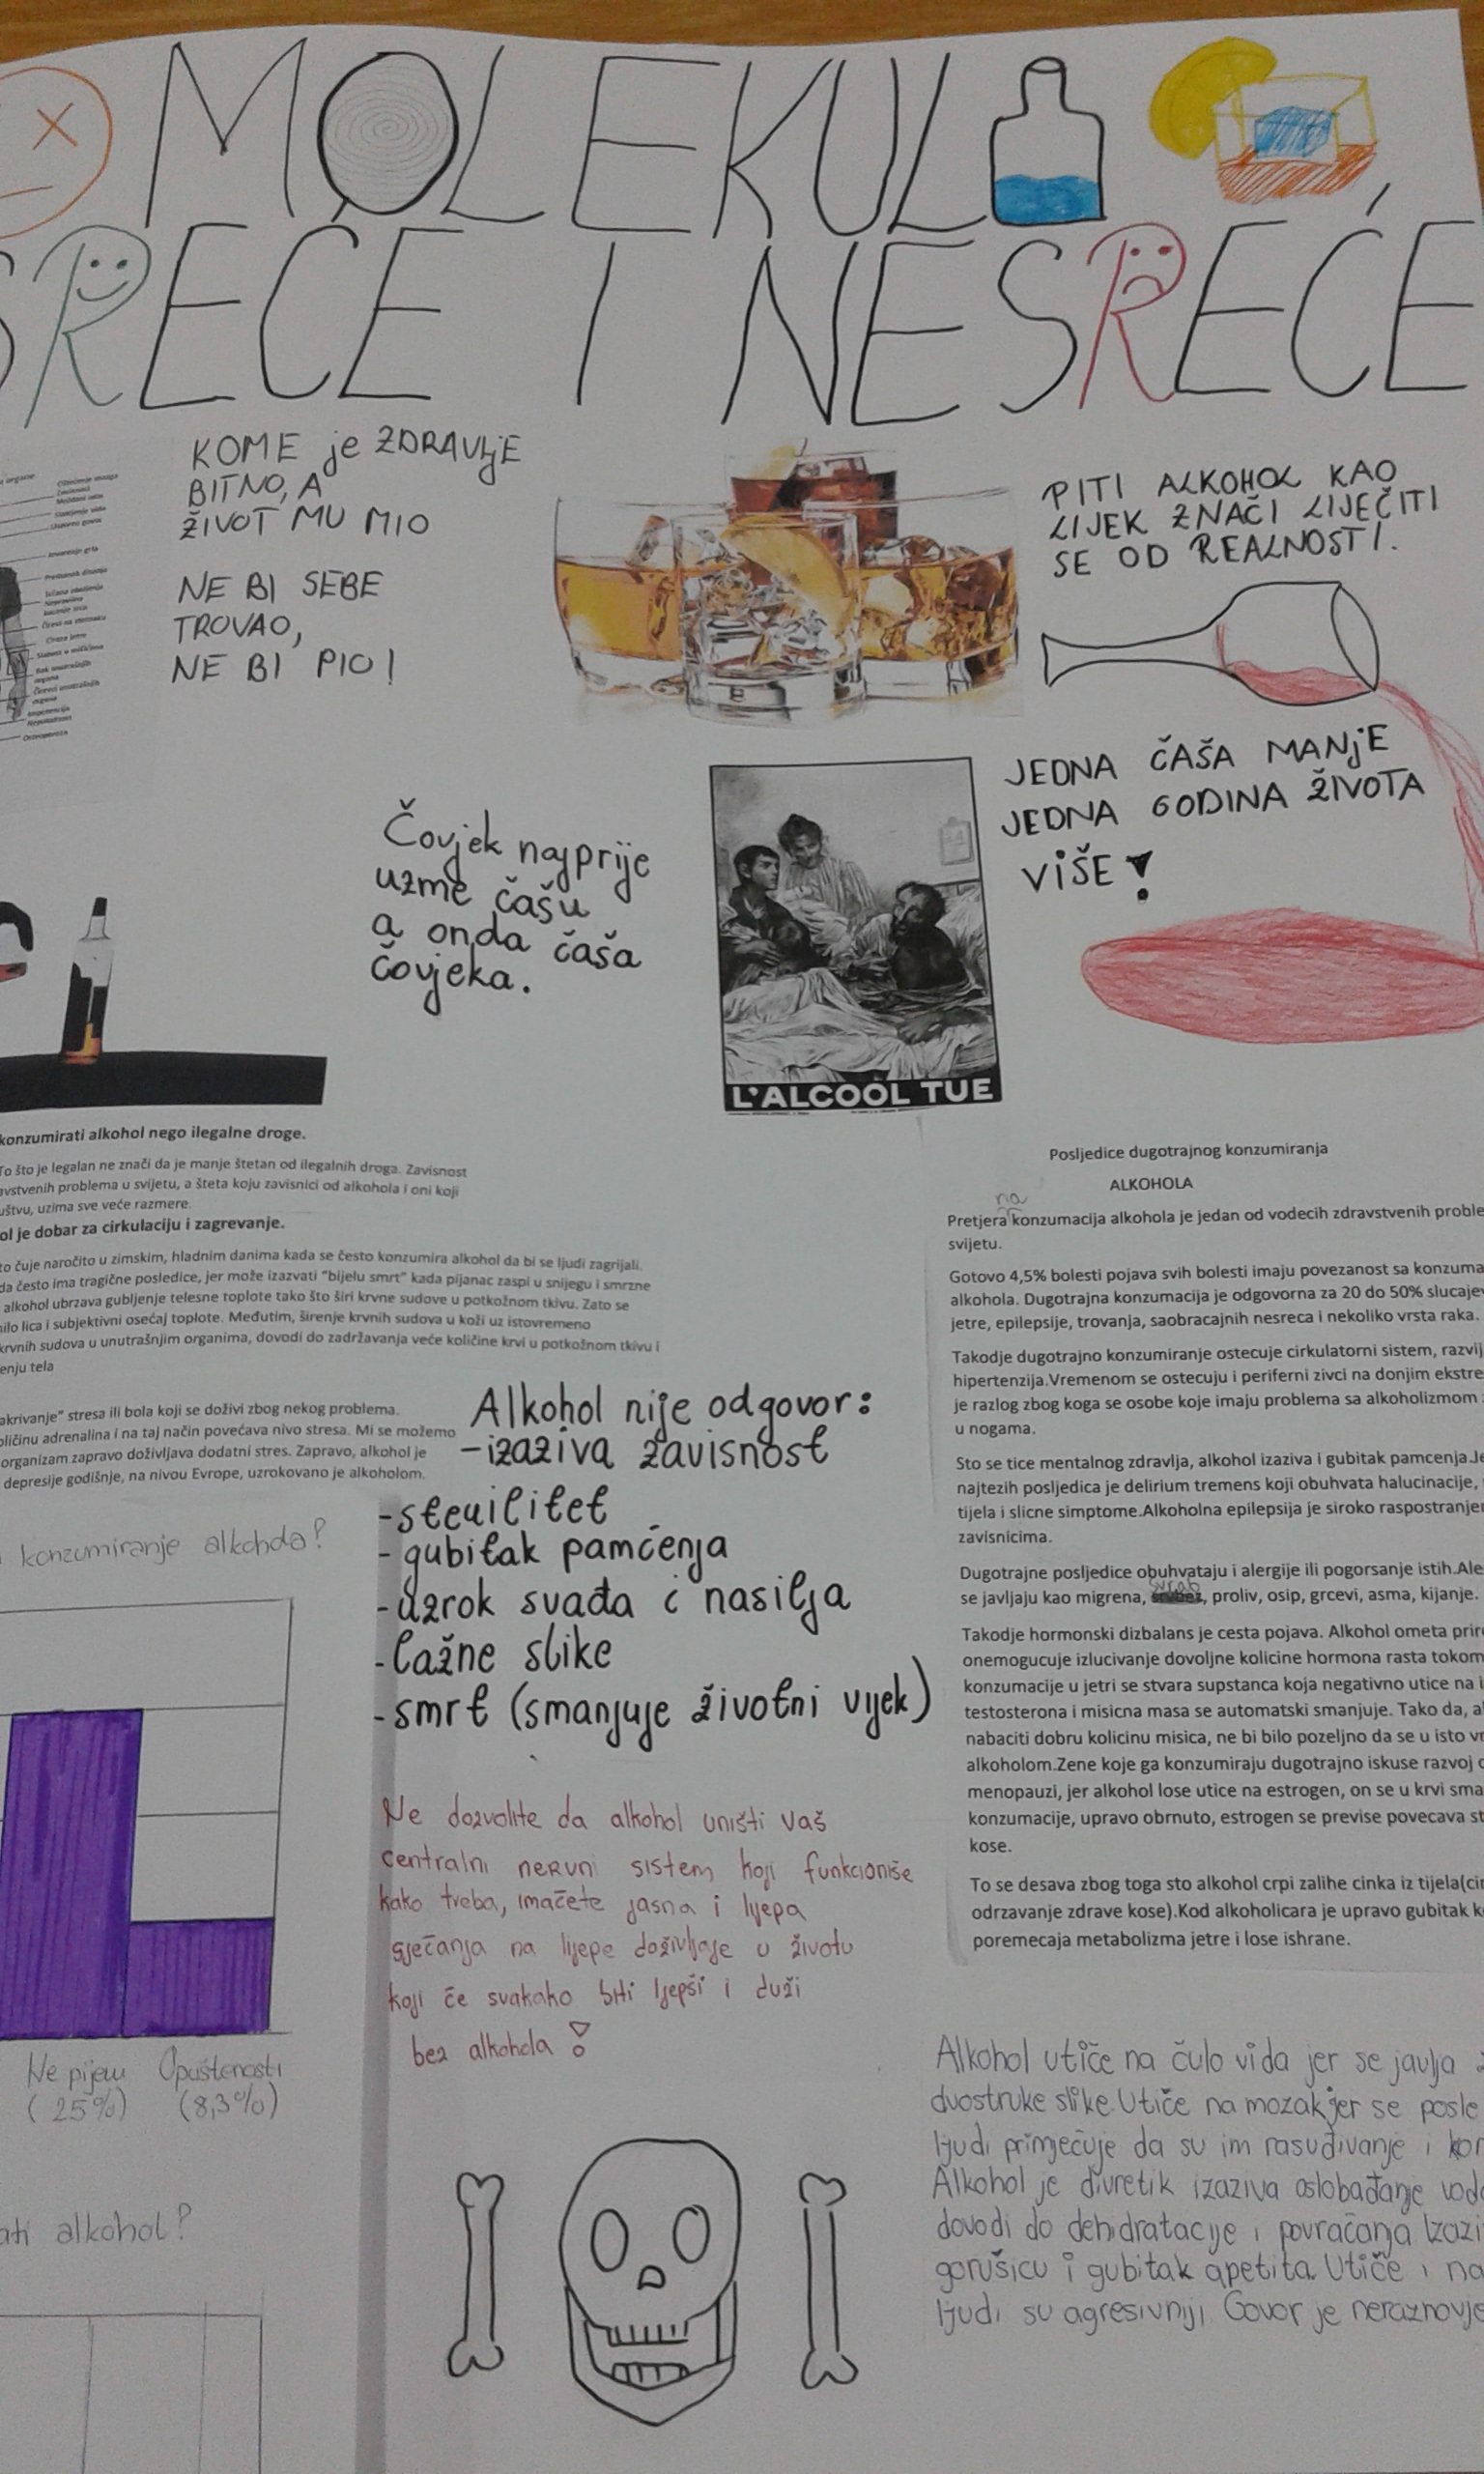 MOLEKUL
SREĆE I NESREĆE
KOME je ZDRAVLjE
BITNO, A
ŽIVOT MU MIO
NE BI SEBE
TROVAO,
NE BI PIO!
PITI ALKOHOL KAO
LIJEK ZNAČI LIJEČITI
SE OD REALNOSTI.
JEDNA ČAŠA MANjE
JEDNA GODINA ŽIVOTA
VIŠE!
Čovjek najprije
uzme čašu
a onda čaša
čovjeka.
L'ALCOOL TUE
konzumirati alkohol nego ilegalne droge.
To što je legalan ne znači da je manje štetan od ilegalnih droga. Zavisnost
avstvenih problema u svijetu, a šteta koju zavisnici od alkohola i oni koji
uštvu, uzima sve veće razmere.
ol je dobar za cirkulaciju i zagrevanje.
to čuje naročito u zimskim, hladnim danima kada se često konzumira alkohol da bi se ljudi zagrijali.
da često ima tragične posledice, jer može izazvati "bijelu smrt" kada pijanac zaspi u snijegu i smrzne
alkohol ubrzava gubljenje telesne toplote tako što širi krvne sudove u potkožnom tkivu. Zato se
nilo lica i subjektivni osećaj toplote. Međutim, širenje krvnih sudova u koži uz istovremeno
krvnih sudova u unutrašnjim organima, dovodi do zadržavanja veće količine krvi u potkožnom tkivu i
enju tela
akrivanje" stresa ili bola koji se doživi zbog nekog problema.
oličinu adrenalina i na taj način povećava nivo stresa. Mi se možemo
organizam zapravo doživljava dodatni stres. Zapravo, alkohol je
depresije godišnje, na nivou Evrope, uzrokovano je alkoholom.
Alkohol nije odgovor:
-izaziva zavisnost
-sterilitet
-gubitak pamćenja
-uzrok svađa i nasilja
-lažne slike
-smrt (smanjuje životni vijek)
konzumiranje alkohola?
Ne pijem
(25%)
Opuštenosti
(8,3%)
ati alkohol?
Ne dozvolite da alkohol uništi vaš
centralni nervni sistem koji funkcioniše
kako treba, imaćete jasna i lijepa
sjećanja na lijepe doživljaje u životu
koji će svakako biti ljepši i duži
bez alkohola!
Posljedice dugotrajnog konzumiranja
ALKOHOLA
na
Pretjera konzumacija alkohola je jedan od vodecih zdravstvenih proble
svijetu.
Gotovo 4,5% bolesti pojava svih bolesti imaju povezanost sa konzuma
alkohola. Dugotrajna konzumacija je odgovorna za 20 do 50% slucajev
jetre, epilepsije, trovanja, saobracajnih nesreca i nekoliko vrsta raka.
Takodje dugotrajno konzumiranje ostecuje cirkulatorni sistem, razvij
hipertenzija.Vremenom se ostecuju i periferni zivci na donjim ekstre
je razlog zbog koga se osobe koje imaju problema sa alkoholizmom
u nogama.
Sto se tice mentalnog zdravlja, alkohol izaziva i gubitak pamcenja.Je
najtezih posljedica je delirium tremens koji obuhvata halucinacije,
tijela i slicne simptome.Alkoholna epilepsija je siroko raspostranjen
zavisnicima.
Dugotrajne posljedice obuhvataju i alergije ili pogorsanje istih.Ale
svrab
se javljaju kao migrena, , proliv, osip, grcevi, asma, kijanje.
Takodje hormonski dizbalans je cesta pojava. Alkohol ometa priro
onemogucuje izlucivanje dovoljne kolicine hormona rasta tokom
konzumacije u jetri se stvara supstanca koja negativno utice na i
testosterona i misicna masa se automatski smanjuje. Tako da, a
nabaciti dobru kolicinu misica, ne bi bilo pozeljno da se u isto vr
alkoholom.Zene koje ga konzumiraju dugotrajno iskuse razvoj
menopauzi, jer alkohol lose utice na estrogen, on se u krvi sma
konzumacije, upravo obrnuto, estrogen se previse povecava st
kose.
To se desava zbog toga sto alkohol crpi zalihe cinka iz tijela(cin
odrzavanje zdrave kose).Kod alkoholicara je upravo gubitak k
poremecaja metabolizma jetre i lose ishrane.
Alkohol utiče na čulo vida jer se javlja
dvostruke slike.Utiče na mozak jer se posle
ljudi primjećuje da su im rasuđivanje i kor
Alkohol je diuretik izaziva oslobađanje vode
dovodi do dehidratacije i povraćanja Izazi
gorušicu i gubitak apetita. Utiče i na
ljudi su agresivniji Govor je neraznovje